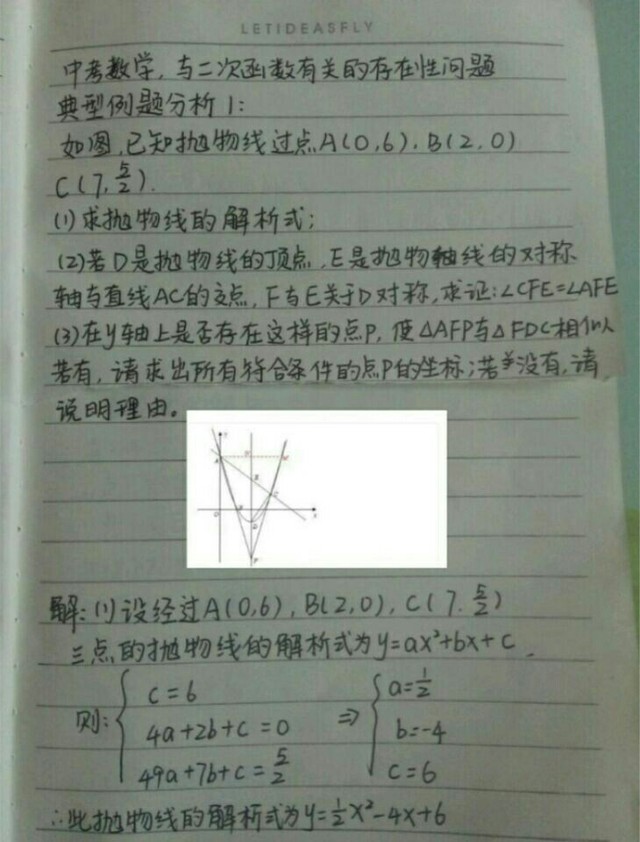 LETIDEASFLY
中考数学,与二次函数有关的存在性问题
典型例题分析1:
如图,已知抛物线过点A(0,6),B(2,0)
C(7,5/2).
(1)求抛物线的解析式;
(2)若D是抛物线的顶点,E是抛物轴线的对称
轴与直线AC的交点,F与E关于D对称,求证:∠CFE=∠AFE
(3)在y轴上是否存在这样的点P,使△AFP与△FDC相似
若有,请求出所有符合条件的点P的坐标;若没有,请
说明理由。
解:(1)设经过A(0,6),B(2,0),C(7,5/2)
三点的抛物线的解析式为y=ax²+bx+c,
则:{c=6 4a+2b+c=0 49a+7b+c=5/2 ⇒ {a=1/2 b=-4 c=6
∴此抛物线的解析式为y=1/2x²-4x+6